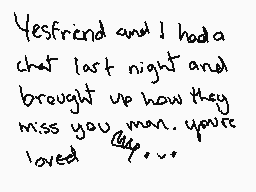 Yesfriend and I had a
chat last night and
brought up how they
miss you man. you're
loved